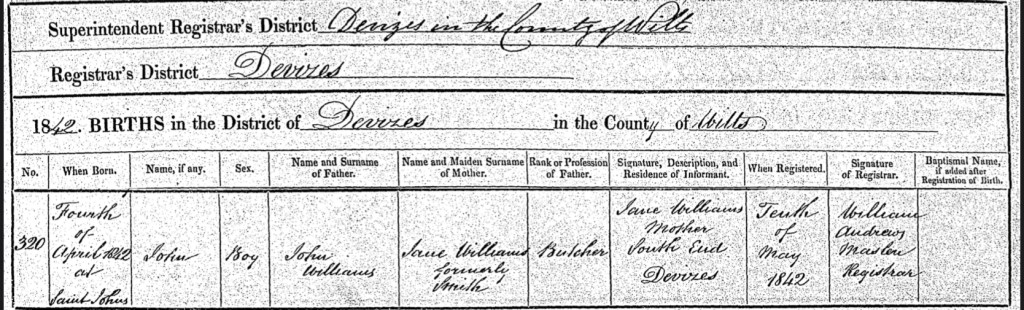 Superintendent Registrar's District Devizes in the County of Wilts
Registrar's District Devizes
1842. BIRTHS in the District of Devizes in the County of Wilts
No.
When Born.
Name, if any.
Sex.
Name and Surname
of Father.
Name and Maiden Surname
of Mother.
Rank or Profession
of Father.
Signature, Description, and
Residence of Informant.
When Registered.
Signature
of Registrar.
Baptismal Name,
if added after
Registration of Birth.
320
Fourth
of
April 1842
at
Saint Johns
John
Boy
John
Williams
Jane Williams
formerly
Smith
Butcher
Jane Williams
Mother
South End
Devizes
Tenth
of
May
1842
William
Andrews
Maslen
Registrar